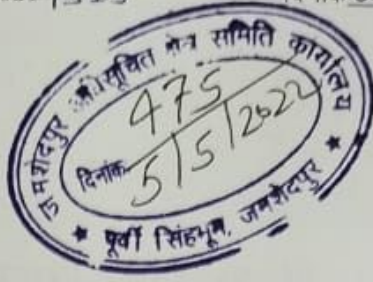 जमशेदपुर अधिसूचित क्षेत्र समिति कार्यालय
475
दिनांक 5/5/2022
★ पूर्वी सिंहभूम, जमशेदपुर ★